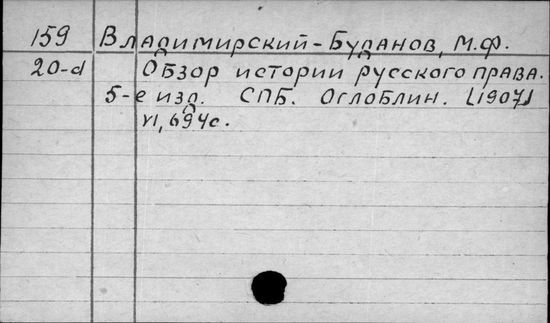 159 Владимирский-Буданов, М.Ф.
20-d Обзор истории русского права.
5-е изд. СПБ. Оглоблин. [1907]
VI, 694с.